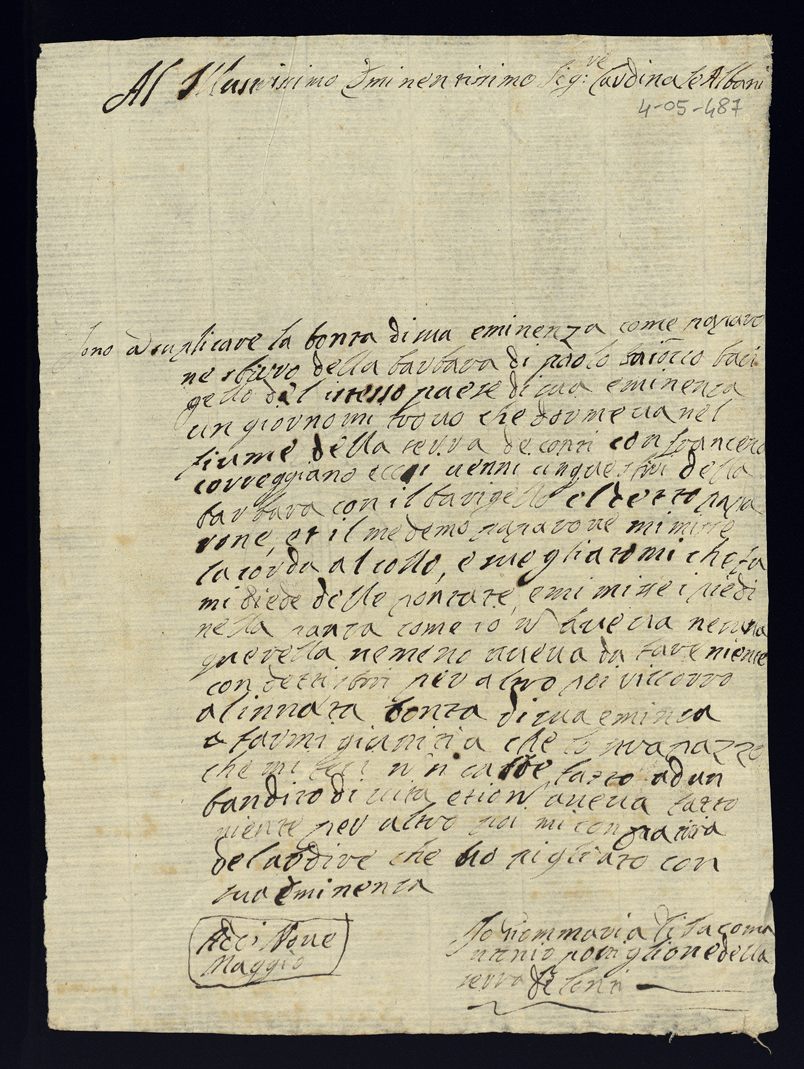 Al Illustrissimo Eminentissimo Sig:re Cardinale Albani
4-05-487
sono à suplicare la bonta di sua eminenza come papavo
ne sbirro della barbara di paolo bari
gello del istesso paese di sua eminenza
un giorno mi trovo che dormeva nel
fiume della serra de conti con francesco
correggiano eccoti venni cinque sbiri della
barbara con il barigello el detto papa
vone, et il medemo papavone mi misse
la corda al collo, e svegliatomi che fu
mi diede delle pontate, e mi misse i piedi
nella panza come io n haveva nessuna
querella nemeno aveva da fare niente
con detti sbiri per altro poi riccorro
alinnata bonta di sua eminea
a farmi giustitia che lo strapazzo
che mi feci n'n sarebe fatto ad un
bandito di vita et io n' aveva fatto
niente per altro poi mi con
del ardire che ho pigliato con
sua Eminenza
Adci Nove
Maggio
Io Giommaria di Giacomo
Antonio postiglione della
serra de Conti